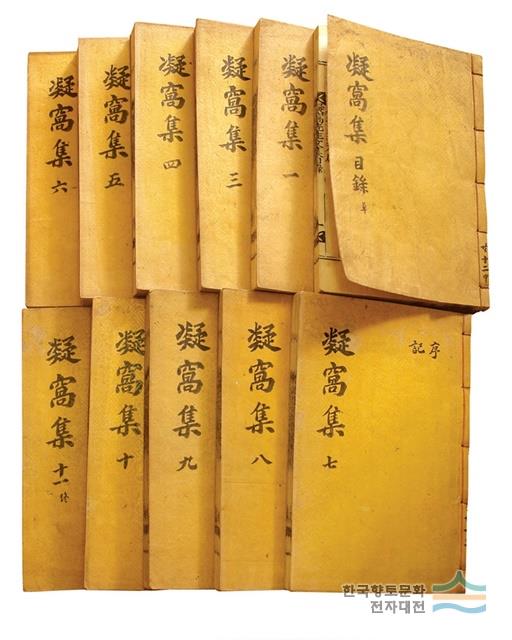 凝窩集 目錄 單
共十二
凝窩集 一
凝窩集 三
凝窩集 四
凝窩集 五
凝窩集 六
序
記
凝窩集 七
凝窩集 八
凝窩集 九
凝窩集 十
凝窩集 十一 終
한국향토문화
전자대전